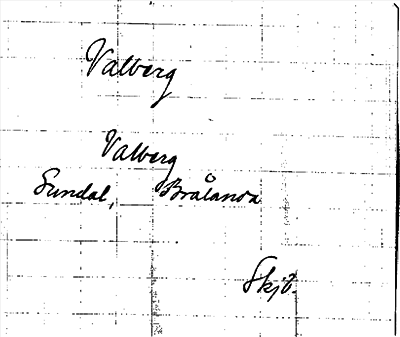 Valberg
Valberg
Sundal, Brålanda
Skjö.